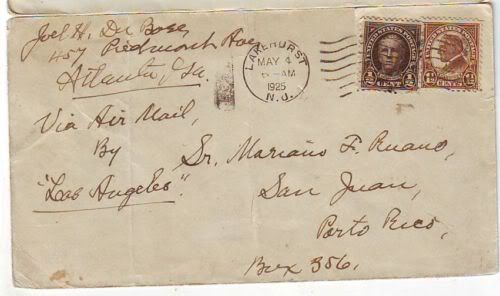 Joel H. Du Bose,
457 Piedmont Ave
Atlanta, Ga.
LAKEHURST
MAY 4
6-AM
1925
N.J.
UNITED STATES POSTAGE
½ CENT ½
UNITED STATES POSTAGE
1½ CENTS 1½
Via Air Mail,
By
"Los Angeles".
Sr. Mariano F. Ruano,
San Juan,
Porto Rico,
Box 356.